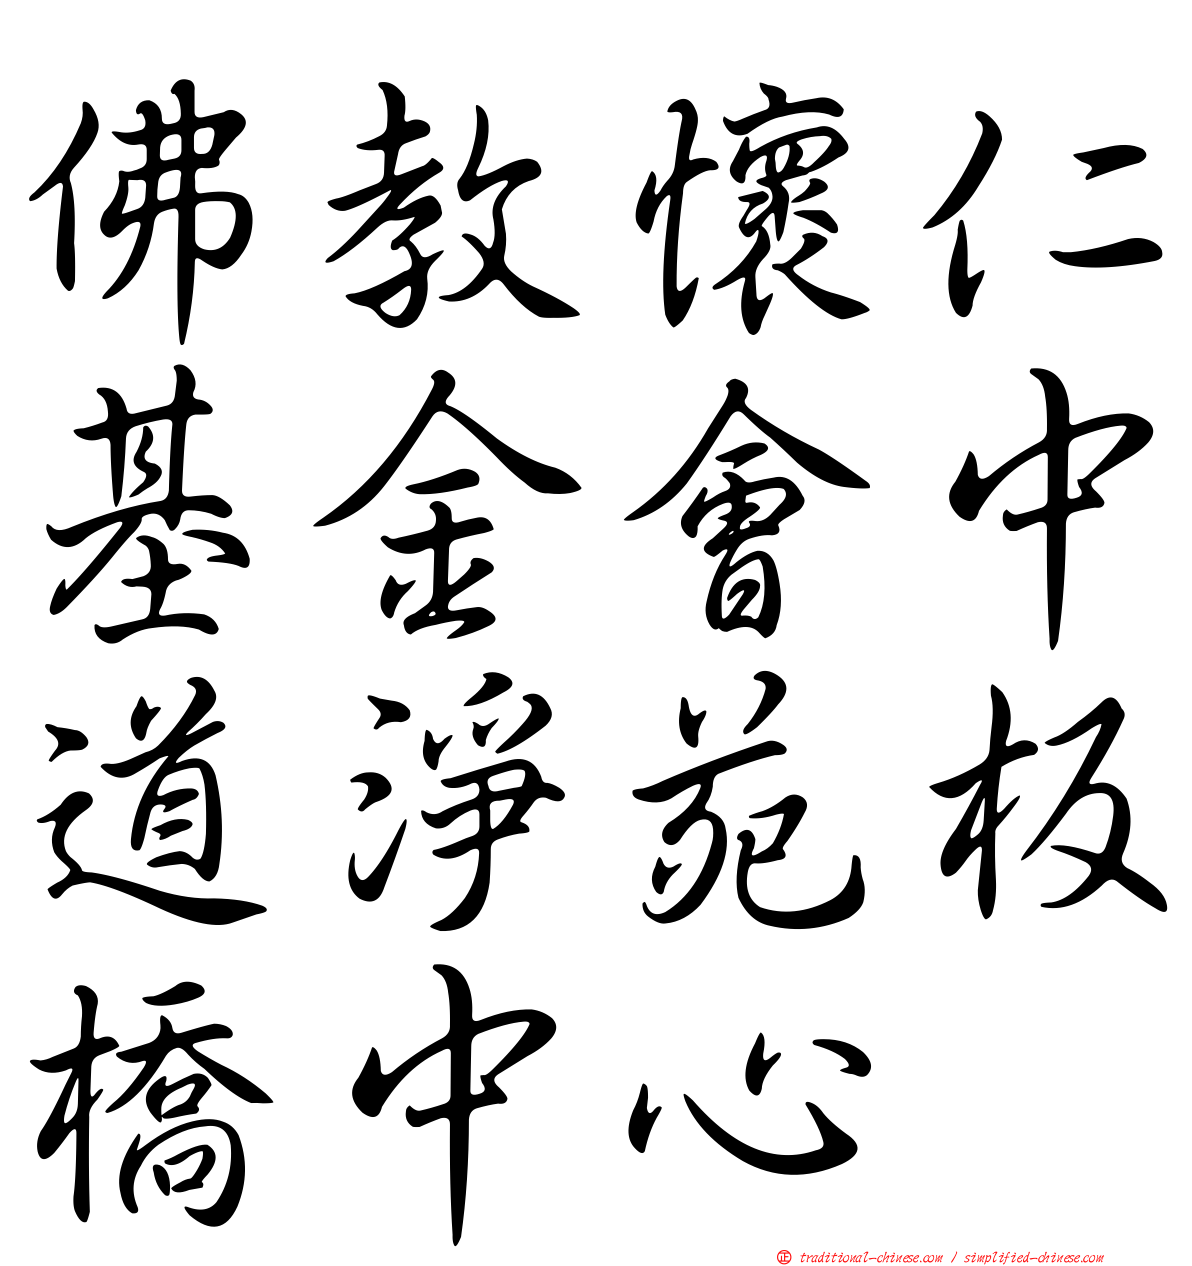 佛教懷仁
基金會中
道淨苑板
橋中心
正 traditional-chinese.com / simplified-chinese.com